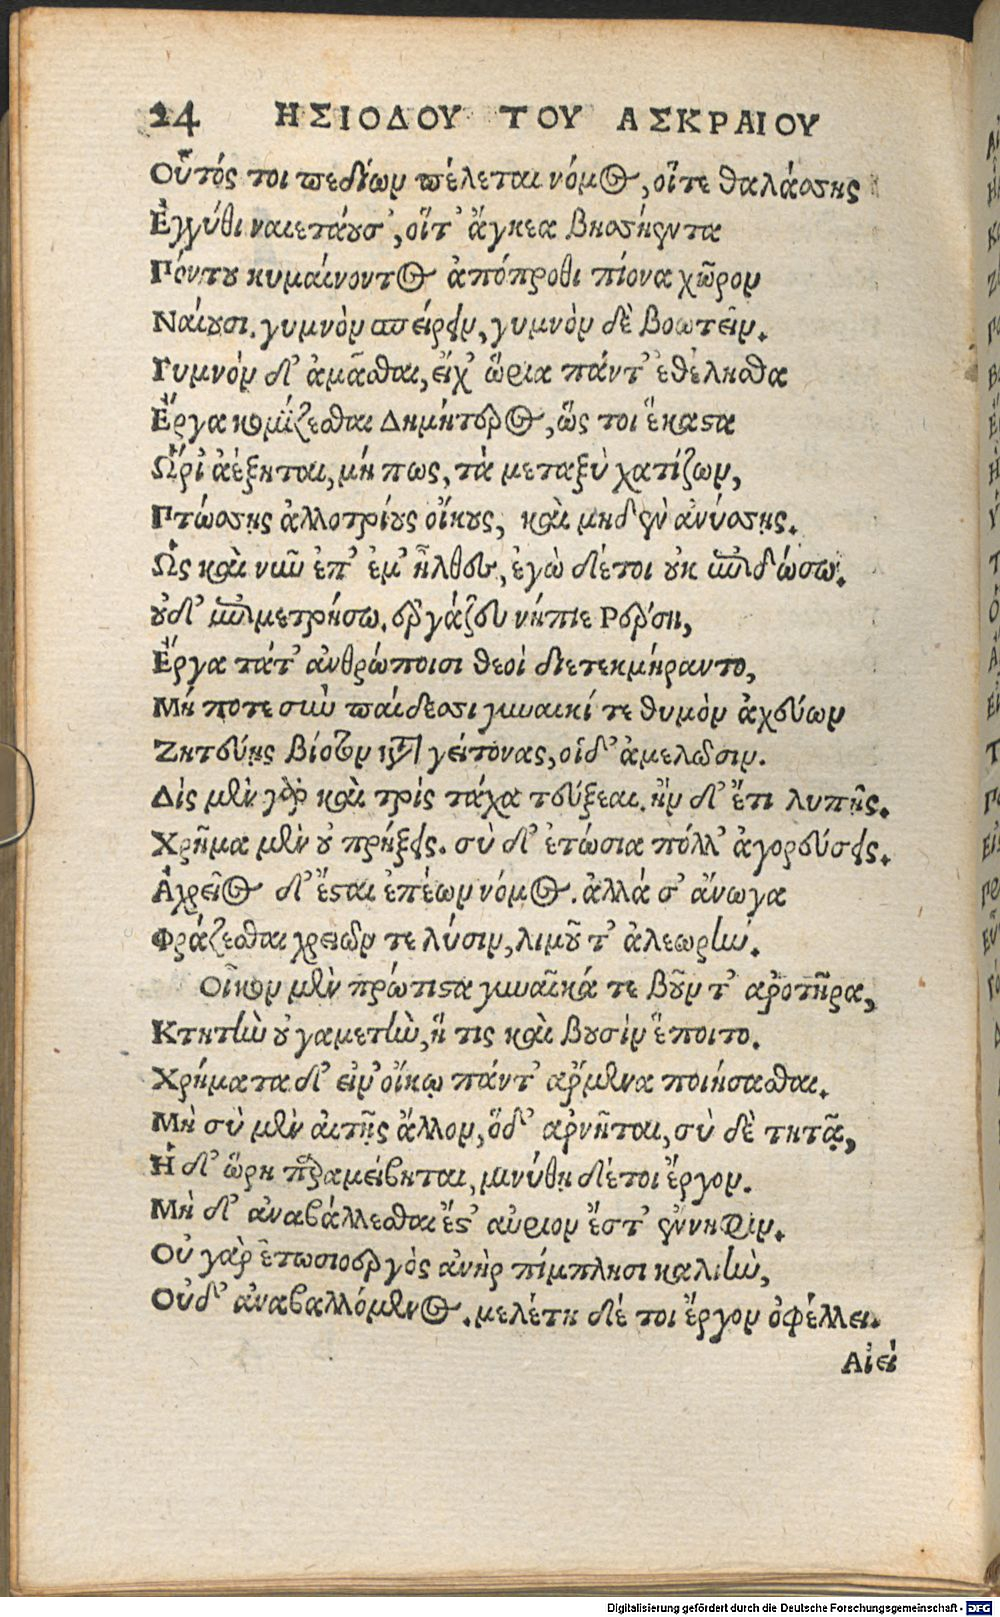 24 ΗΣΙΟΔΟΥ ΤΟΥ ΑΣΚΡΑΙΟΥ
Οὗτός τοι πεδίων πέλεται νόμος, οἵτε θαλάσσης
Ἐγγύθι ναιετάουσ', οἵτ' ἄγκεα βησσήεντα
Πόντου κυμαίνοντος ἀπόπροθι πίονα χῶρον
Ναίουσι. γυμνὸν σπείρειν, γυμνὸν δὲ βοωτεῖν.
Γυμνὸν δ' ἀμᾶσθαι, εἴχ' ὥρια πάντ' ἐθέλησθα
Ἔργα κομίζεσθαι Δημήτερος, ὥς τοι ἕκαστα
Ὥρἰ ἀέξηται, μή πως, τὰ μεταξὺ χατίζων,
Πτώσσῃς ἀλλοτρίους οἴκους, καὶ μηδὲν ἀνύσσῃς.
Ὡς καὶ νῦν ἐπ' ἐμ' ἦλθες, ἐγὼ δέ τοι οὐκ ἐπιδώσω.
οὐδ' ἐπιμετρήσω. ἐργάζευ νήπιε Πέρση,
Ἔργα τάτ' ἀνθρώποισι θεοὶ διετεκμήραντο,
Μή ποτε σὺν παίδεσσι γυναικί τε θυμὸν ἀχεύων
Ζητεύῃς βίοτον κατὰ γείτονας, οἱ δ' ἀμελῶσιν.
Δὶς μὲν γὰρ καὶ τρὶς τάχα τεύξεαι. ἢν δ' ἔτι λυπῇς.
Χρῆμα μὲν οὐ πρήξεις. σὺ δ' ἐτώσια πόλλ' ἀγορεύσεις.
Ἀχρεῖος δ' ἔσται ἐπέων νόμος. ἀλλά σ' ἄνωγα
Φράζεσθαι χρειῶν τε λύσιν, λιμοῦ τ' ἀλεωρήν.
Οἶκον μὲν πρώτιστα γυναῖκά τε βοῦν τ' ἀροτῆρα,
Κτητὴν οὐ γαμετὴν, ἥ τις καὶ βουσὶν ἕποιτο.
Χρήματα δ' εἰν οἴκῳ πάντ' ἄρμενα ποιήσασθαι.
Μὴ σὺ μὲν αἰτῇς ἄλλον, ὁ δ' ἀρνῆται, σὺ δὲ τητᾷ,
Ἡ δ' ὥρη παραμείβηται, μινύθῃ δέ τοι ἔργον.
Μὴ δ' ἀναβάλλεσθαι ἔς τ' αὔριον ἔστ' ἔννηφιν.
Οὐ γὰρ ἐτωσιοεργὸς ἀνὴρ πίμπλησι καλιὴν,
Οὐδ' ἀναβαλλόμενος. μελέτη δέ τοι ἔργον ὀφέλλει.
Αἰεὶ
Digitalisierung gefördert durch die Deutsche Forschungsgemeinschaft - DFG